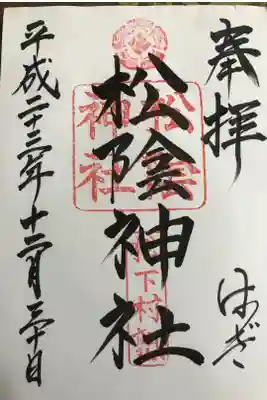 奉拝
はぎ
松陰神社
松陰
神社
松下村塾
平成二十三年十二月三十日